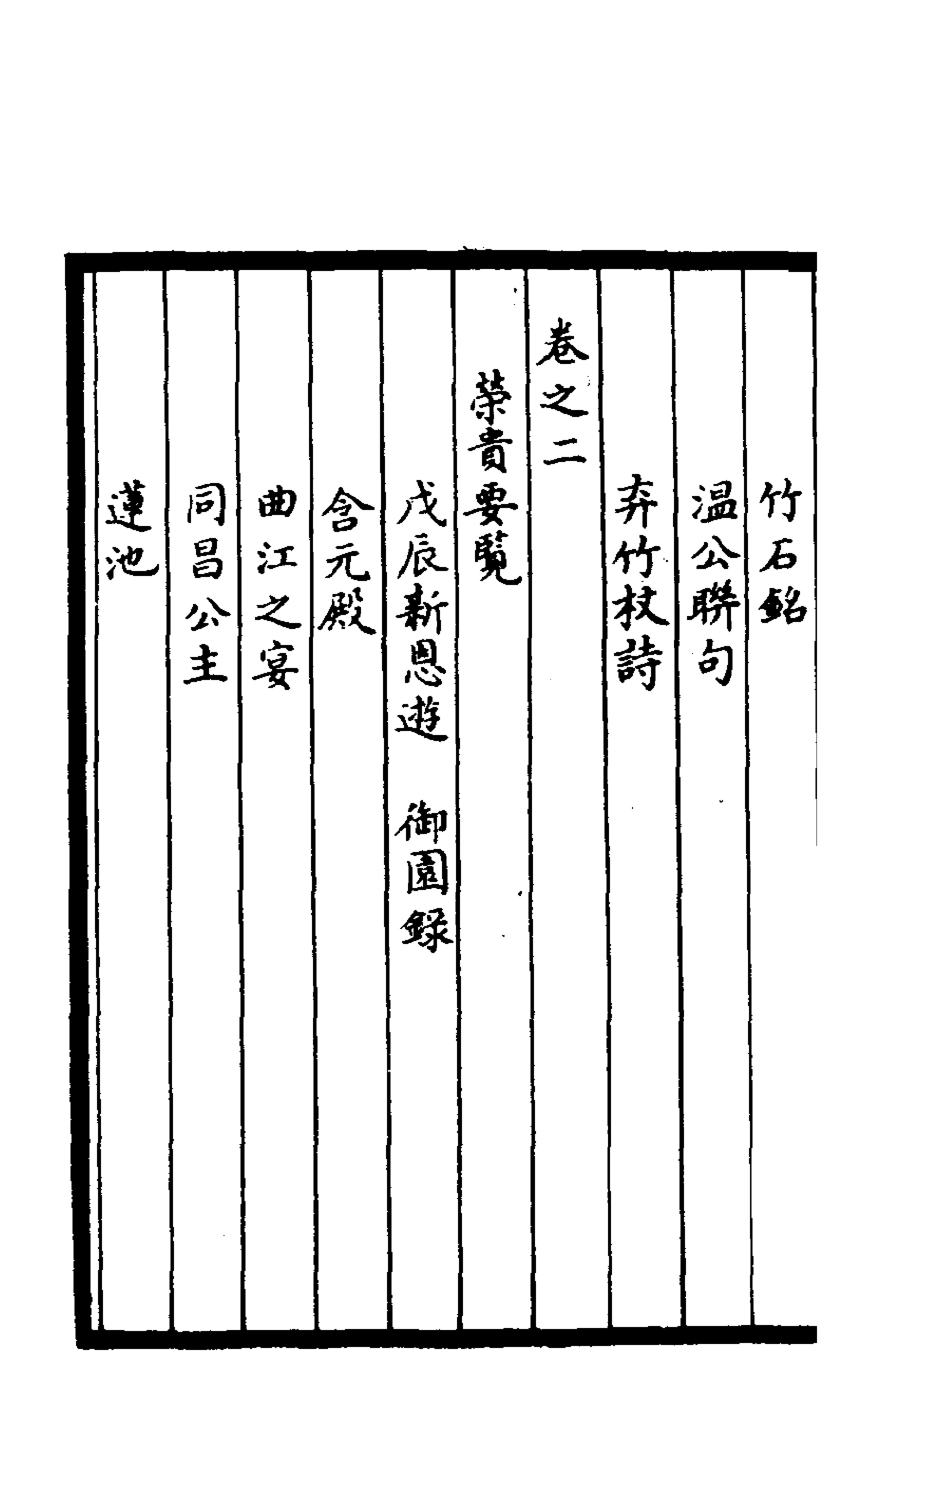 竹石銘
温公聯句
弃竹杖詩
卷之二
榮貴要覧
戊辰新恩遊　御園錄
含元殿
曲江之宴
同昌公主
蓮池